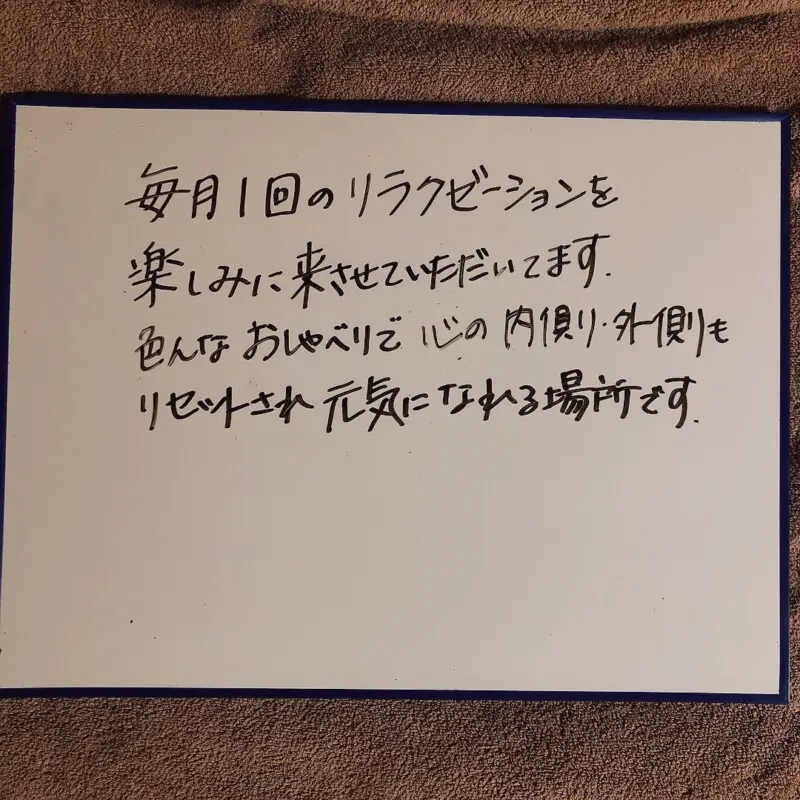 毎月1回のリラクゼーションを
楽しみに来させていただいてます.
色んなおしゃべりで心の内側・外側も
リセットされ元気になれる場所です.